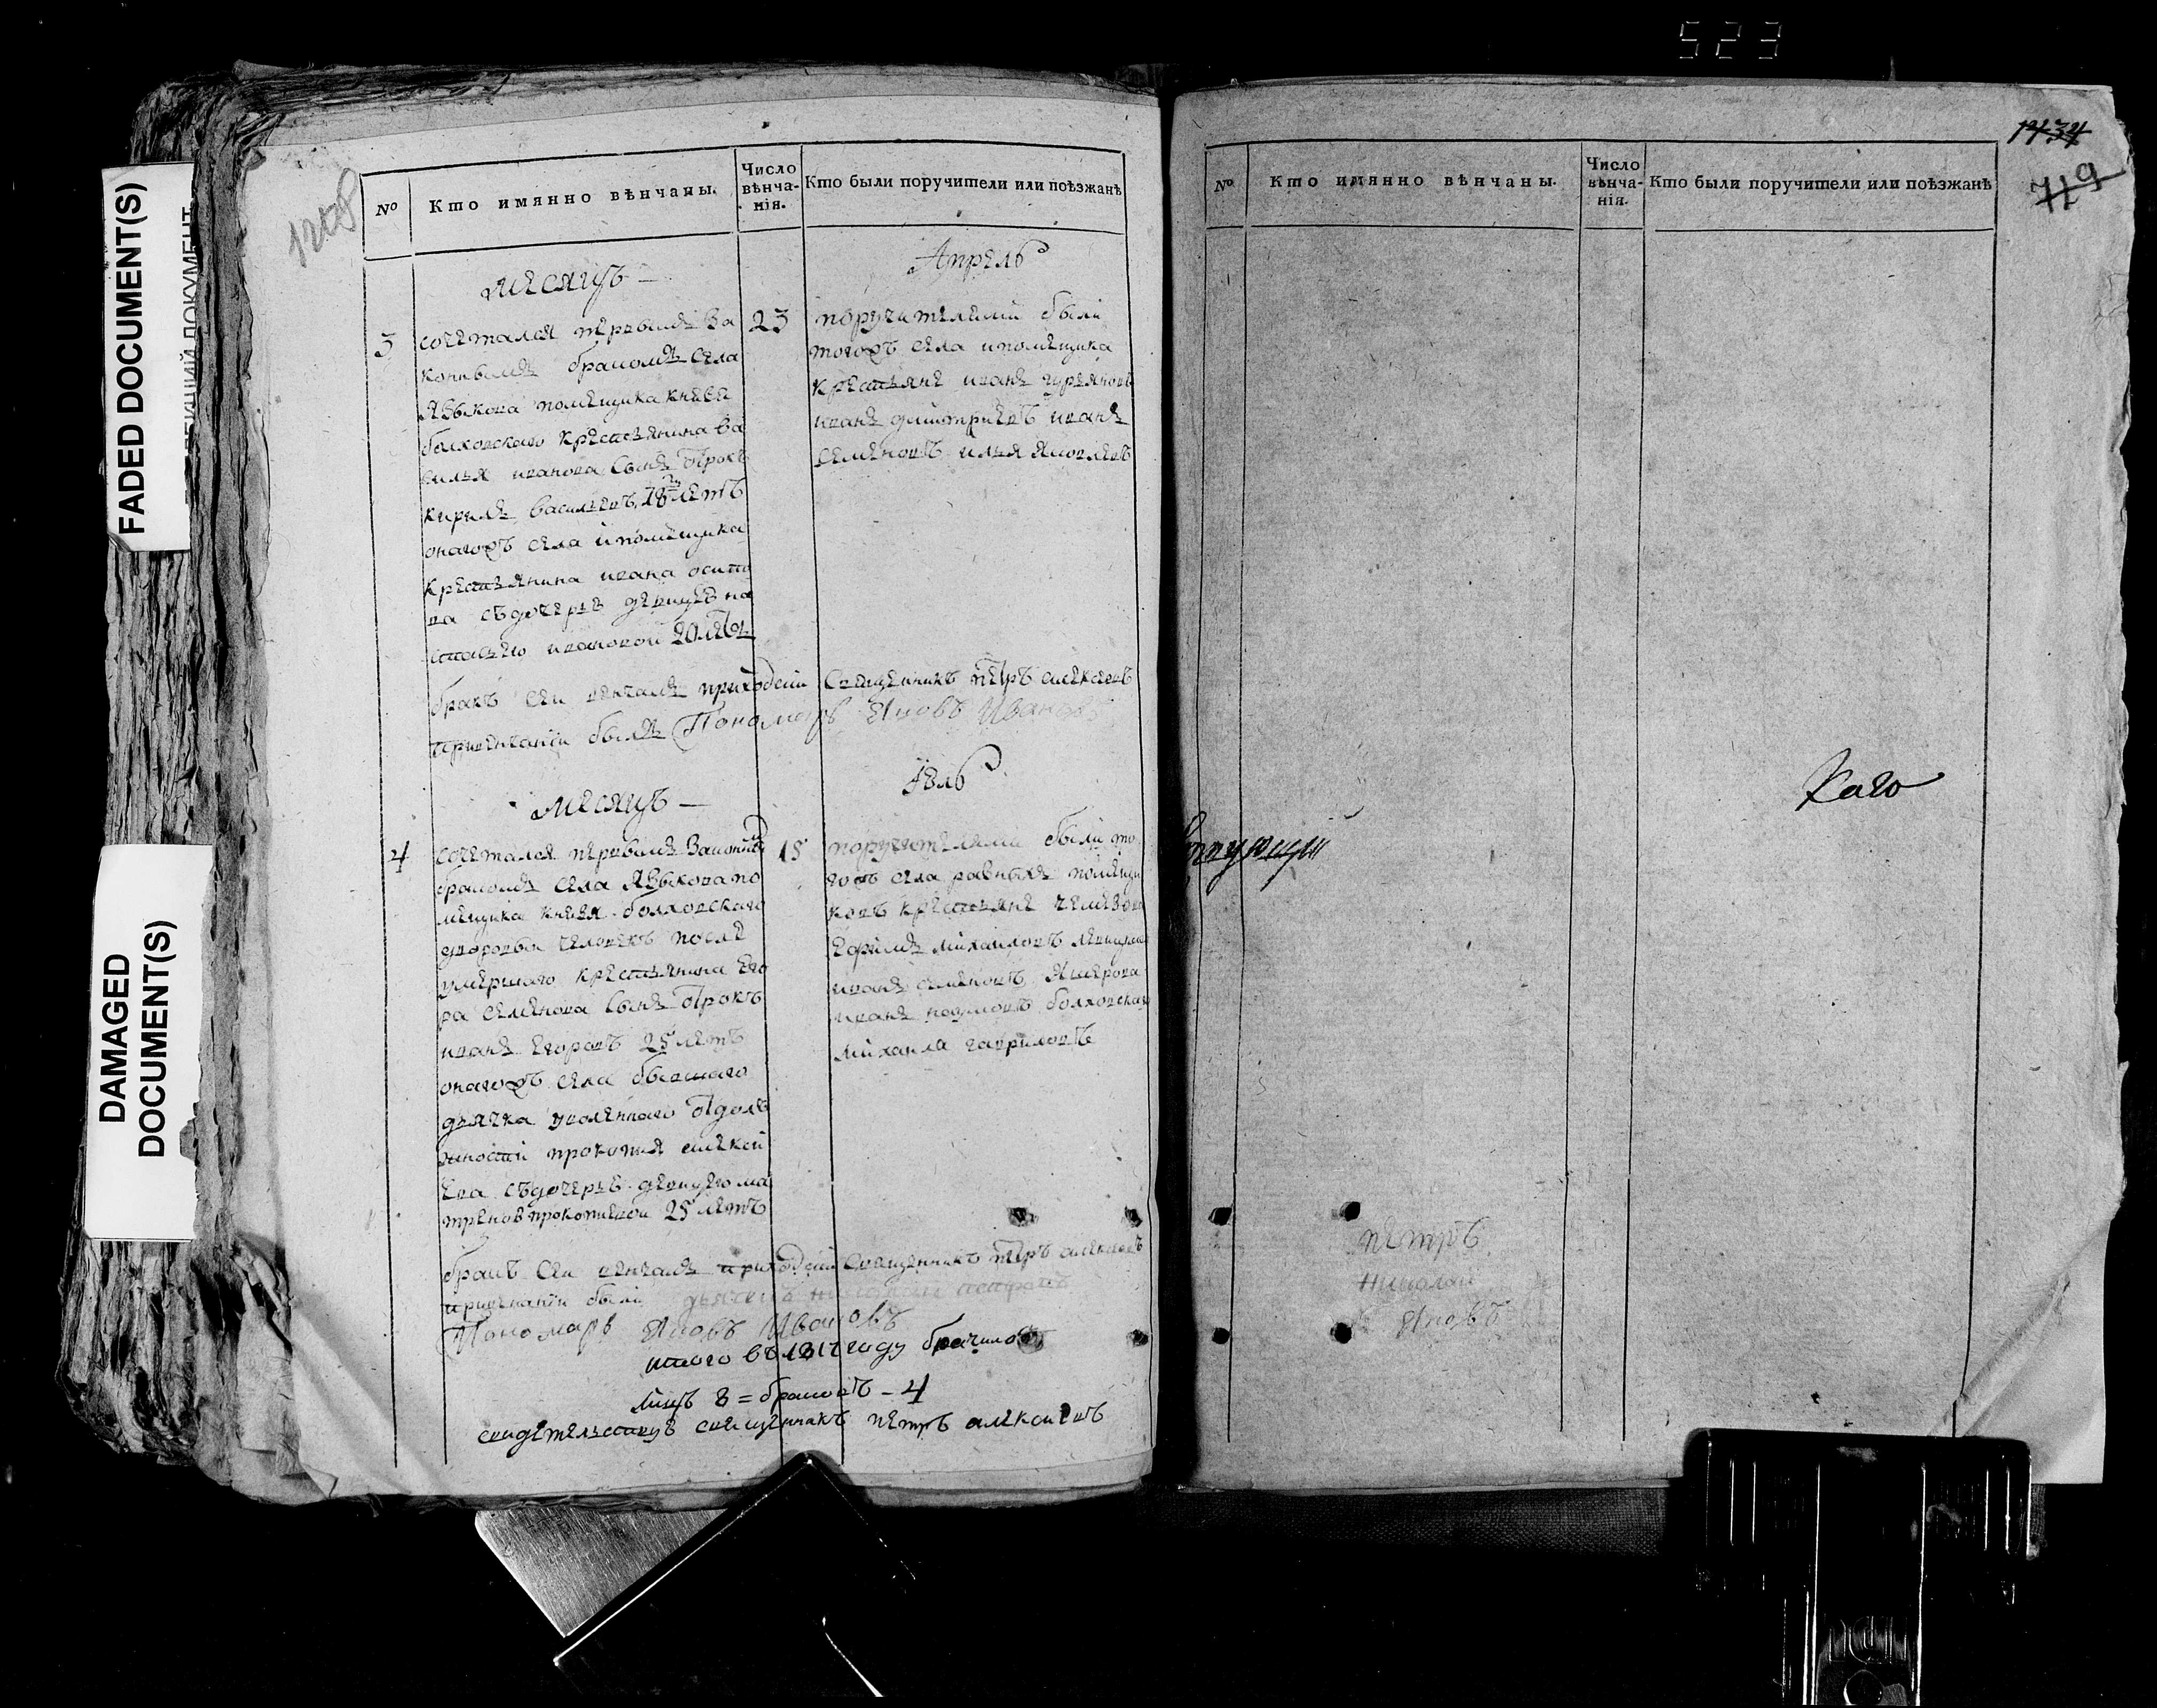 523
FADED DOCUMENT(S)
DAMAGED
DOCUMENT(S)
№
Кто имянно вѣнчаны.
Число
вѣнча-
нія.
Кто были поручители или поѣзжанѣ
месяцъ — Апрель
3
сочетался первымъ за
коннымъ бракомъ села
Языкова помещика князя
болховскаго крестьянина ва
силья иванова сынъ отрокъ
кирилъ васильевъ 18 летъ
онагожъ села и помещика
крестьянина ивана осипо
ва съ дочерью девицею на
стасьею ивановой 20 летъ
23
поручителями были
тогожъ села и помещика
крестьяне иванъ гурьяновъ
иванъ дмитриевъ иванъ
семеновъ илья Яковлевъ
бракъ сеи венчалъ приходскiи священникъ петръ алексеевъ
при венчанiи былъ Пономарь Яковъ Ивановъ
месяцъ — Iюль
4
сочетался первымъ законнымъ
бракомъ села Языкова по
мещика князя болховскаго
дворовыи человекъ после
умершаго крестьянина Его
ра семенова сынъ отрокъ
иванъ Егоровъ 25 летъ
онагожъ села бывшаго
дьячка уволеннаго от дол
жности прокопия алексе
ева съ дочерью девицею ма
треною прокопиевои 25 летъ
15
поручителями были то
гожъ села разныхъ помещи
ковъ крестьяне
Ефимъ михаиловъ
иванъ семеновъ
иванъ наумовъ болховскаго
михаила гавриловъ
бракъ сеи венчалъ приходскiи священникъ петръ алексеевъ
при венчанiи были дьячекъ николаи петровъ
Пономарь Яковъ Ивановъ
итого въ 1817 году брачилось
лицъ 8 = браковъ — 4
свидетельствуе священникъ петръ алексеевъ
1734
719
№
Кто имянно вѣнчаны.
Число
вѣнча-
нія.
Кто были поручители или поѣзжанѣ
Каго
петръ
николаи
Яковъ